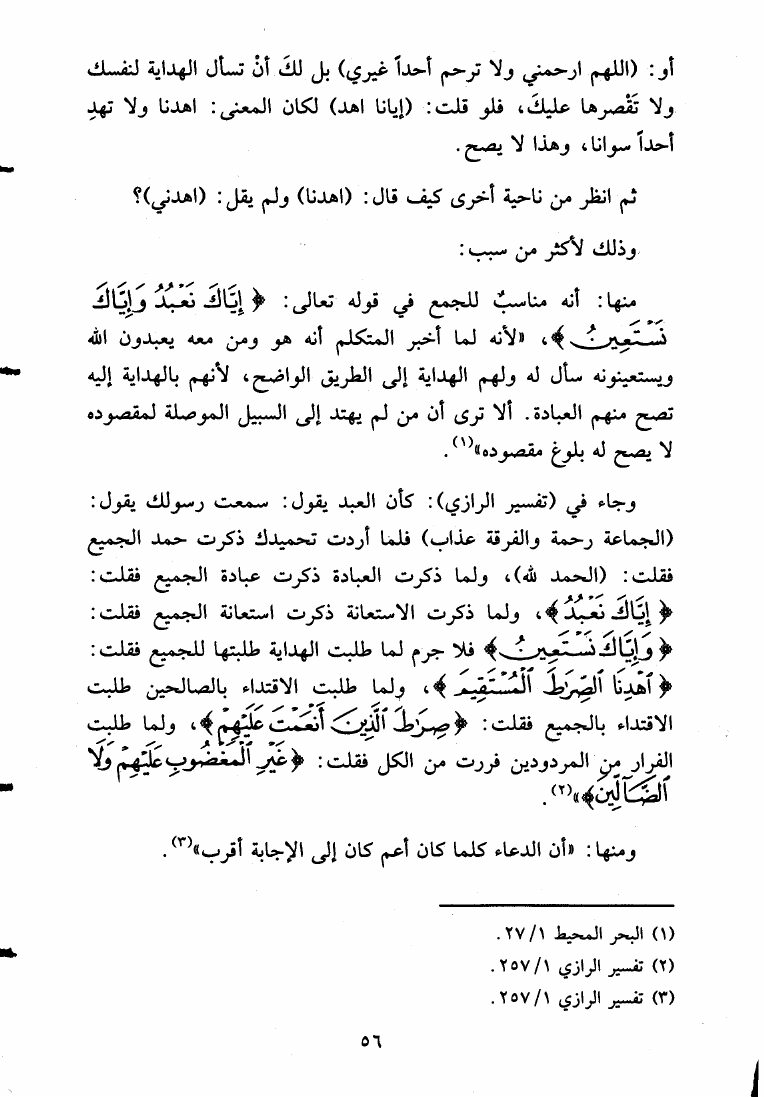 أو: (اللهم ارحمني ولا ترحم أحداً غيري) بل لكَ أنْ تسأل الهداية لنفسك
ولا تَقْصرها عليكَ، فلو قلت: (إيانا اهد) لكان المعنى: اهدنا ولا تهدِ
أحداً سوانا، وهذا لا يصح.
ثم انظر من ناحية أخرى كيف قال: (اهدنا) ولم يقل: (اهدني)؟
وذلك لأكثر من سبب:
منها: أنه مناسبٌ للجمع في قوله تعالى: ﴿إِيَّاكَ نَعْبُدُ وَإِيَّاكَ
نَسْتَعِينُ﴾، «لأنه لما أخبر المتكلم أنه هو ومن معه يعبدون الله
ويستعينونه سأل له ولهم الهداية إلى الطريق الواضح، لأنهم بالهداية إليه
تصح منهم العبادة. ألا ترى أن من لم يهتد إلى السبيل الموصلة لمقصوده
لا يصح له بلوغ مقصوده»(١).
وجاء في (تفسير الرازي): كأن العبد يقول: سمعت رسولك يقول:
(الجماعة رحمة والفرقة عذاب) فلما أردت تحميدك ذكرت حمد الجميع
فقلت: (الحمد لله)، ولما ذكرت العبادة ذكرت عبادة الجميع فقلت:
﴿إِيَّاكَ نَعْبُدُ﴾، ولما ذكرت الاستعانة ذكرت استعانة الجميع فقلت:
﴿وَإِيَّاكَ نَسْتَعِينُ﴾ فلا جرم لما طلبت الهداية طلبتها للجميع فقلت:
﴿ٱهْدِنَا ٱلصِّرَٰطَ ٱلْمُسْتَقِيمَ﴾، ولما طلبت الاقتداء بالصالحين طلبت
الاقتداء بالجميع فقلت: ﴿صِرَٰطَ ٱلَّذِينَ أَنْعَمْتَ عَلَيْهِمْ﴾، ولما طلبت
الفرار من المردودين فررت من الكل فقلت: ﴿غَيْرِ ٱلْمَغْضُوبِ عَلَيْهِمْ وَلَا
ٱلضَّآلِّينَ﴾»(٢).
ومنها: «أن الدعاء كلما كان أعم كان إلى الإجابة أقرب»(٣).
(١) البحر المحيط ٢٧/١.
(٢) تفسير الرازي ٢٥٧/١.
(٣) تفسير الرازي ٢٥٧/١.
٥٦